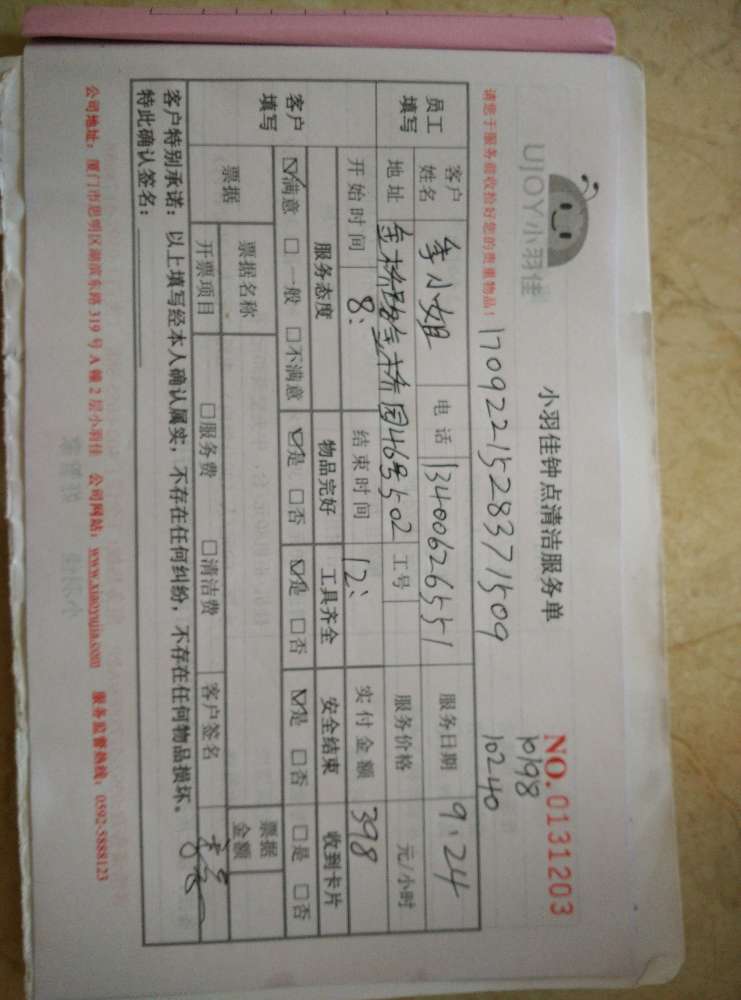 UJOY小羽佳
小羽佳钟点清洁服务单
NO.0131203
请您于服务前收拾好您的贵重物品！
1709221528371509
10198
10240
员工填写
客户姓名 李小姐 电话 13400626551 服务日期 9.24
地址 金桥路金桥园46号502 工号 服务价格 元/小时
开始时间 8: 结束时间 12: 实付金额 398
客户填写
服务态度 物品完好 工具齐全 安全结束 收到卡片
☑满意 □一般 □不满意 ☑是 □否 ☑是 □否 ☑是 □否 □是 □否
票据 票据名称 票据金额
开票项目 □服务费 □清洁费 客户签名
客户特别承诺：以上填写经本人确认属实，不存在任何纠纷，不存在任何物品损坏。
特此确认签名：
公司地址：厦门市思明区湖滨东路319号A幢2层小羽佳 公司网站：www.xiaoyujia.com 服务监督热线：0592-5888123